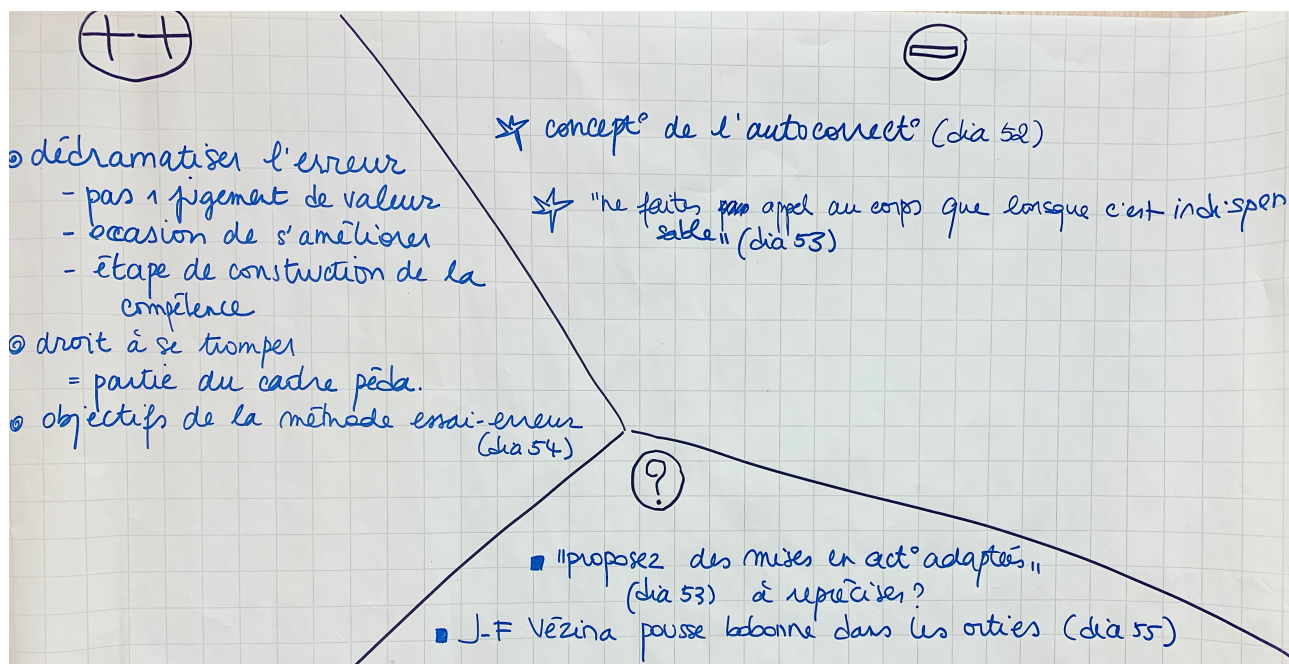 ++
dédramatiser l'erreur
- pas 1 jugement de valeur
- occasion de s'améliorer
- étape de construction de la
compétence
droit à se tromper
= partie du cadre péda.
objectifs de la méthode essai-erreur
(dia 54)
-
concept° de l'autocorrect° (dia 52)
"ne faites appel au corps que lorsque c'est indispen
sable" (dia 53)
?
"proposez des mises en act° adaptées"
(dia 53) à repréciser?
J-F Vézina pousse bobonne dans les orties (dia 55)